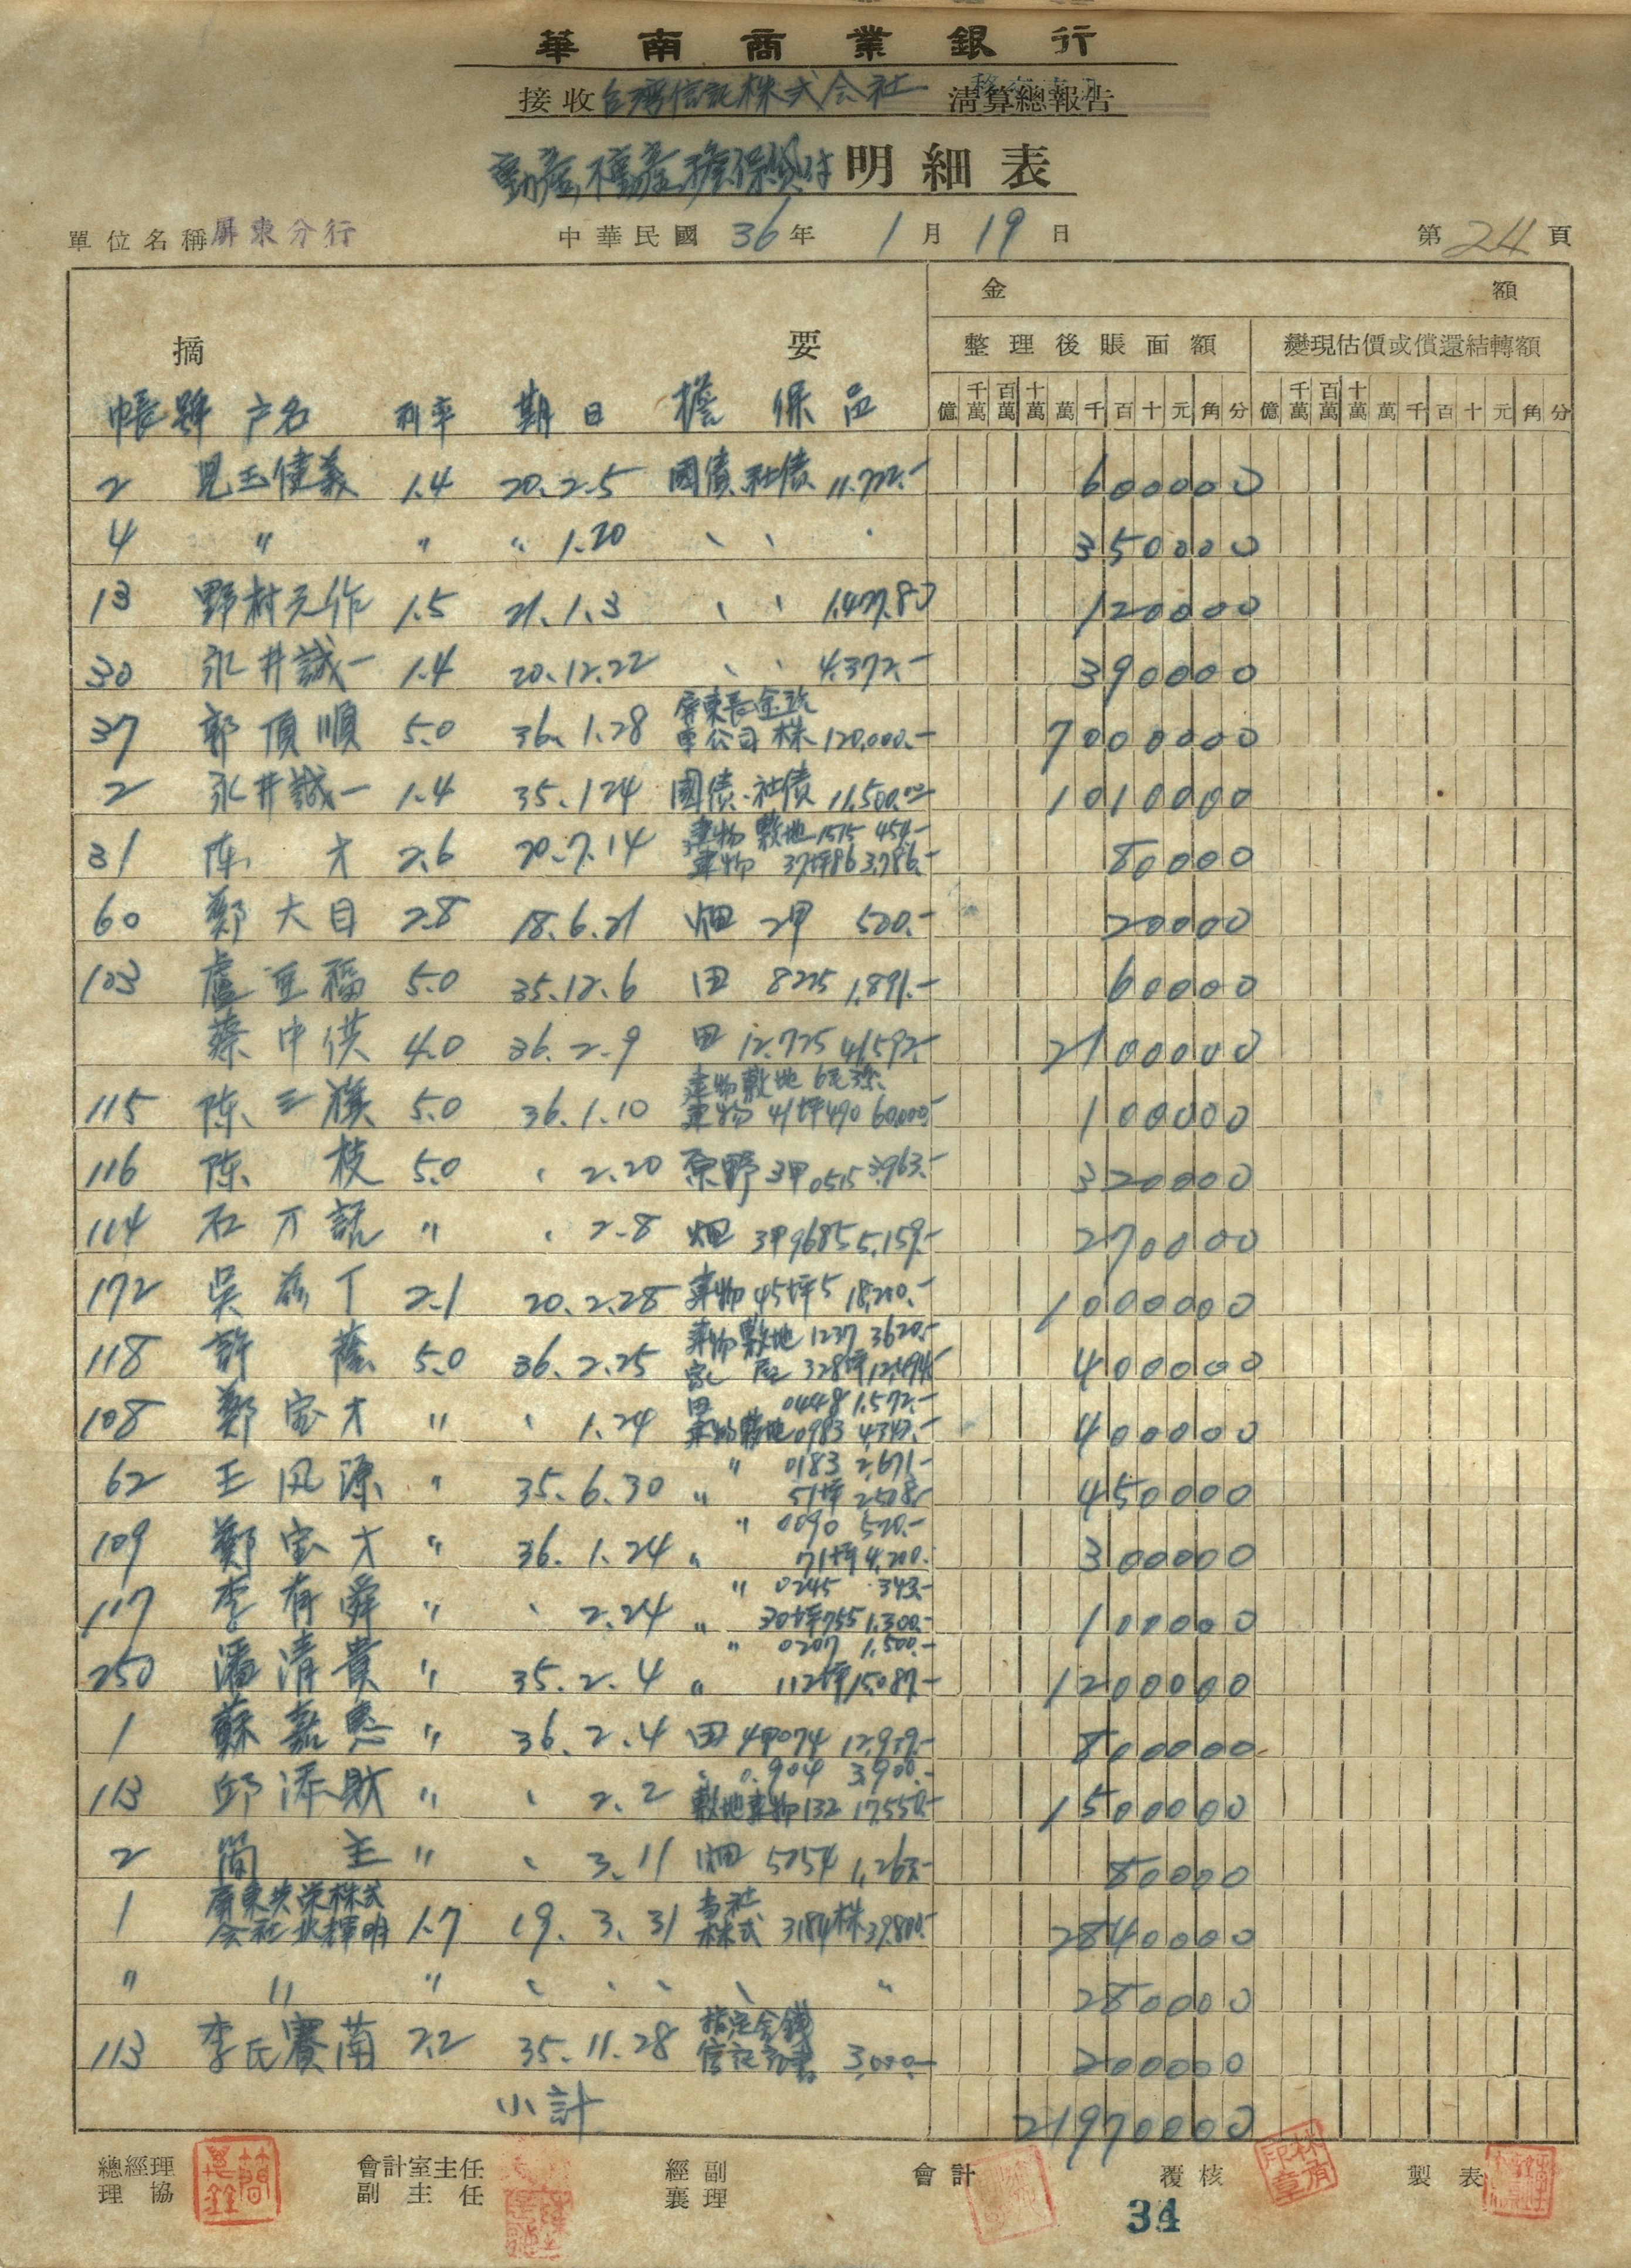 華南商業銀行
接收台灣信託株式会社 清算總報告
動産,不動産擔保貸付 明細表
單位名稱 屏東分行 中華民國 36 年 1 月 19 日 第 24 頁
摘 要 金 額
整理後賬面額 變現估價或償還結轉額
億 千萬 百萬 十萬 萬 千 百 十 元 角 分 億 千萬 百萬 十萬 萬 千 百 十 元 角 分
帳號 戶名 利率 期日 擔保品
2 児玉健義 1.4 20.2.5 國債 社債 11.722.- 600000
4 〃 〃 〃 1.20 、 、 . 350000
13 野村元作 1.5 21.1.3 、 、 1,427.80 120000
30 永井誠一 1.4 20.12.22 、 、 4.372.- 390000
37 郭頂順 5.0 36.1.28 屏東
車公司 株 120,000.- 7000000
2 永井誠一 1.4 35.124 國債.社債 11,500.00 1010000
31 陈 才 2.6 20.7.14 建物敷地 1515 454.-
建物 37坪86 3,786.- 80000
60 鄭大目 2.8 18.6.21 畑 2甲 520.- 20000
103 盧 福 5.0 35.12.6 田 8225 1,891.- 60000
蔡中供 4.0 36.2.9 田 12.725 41,592.- 2100000
115 陈三旗 5.0 36.1.10 建物敷地
建物 41坪490 60,000.- 100000
116 陈 枝 5.0 、 2.20 原野 3甲0515 3,963.- 320000
114 石 〃 、 2.8 畑 3甲9685 5,159.- 270000
172 吳 丁 2.1 20.2.28 建物 45坪5 18,200.- 1000000
118 許 5.0 36.2.25 建物敷地 1237 3620.-
家屋 328坪 12,494.- 400000
108 鄭宝才 〃 、 1.24 田 0448 1.572.-
建物敷地 0983 4,343.- 400000
62 王风源 〃 35.6.30 〃 0183 2,671.-
〃 51坪 2508.- 450000
109 鄭宝才 〃 36.1.24 〃 0090 520.-
〃 71坪 4,200.- 300000
117 李有舜 〃 、 2.24 〃 0245 343.-
〃 30坪755 1,300.- 100000
250 潘清貴 〃 35.2.4 〃 0207 1,500.-
〃 112坪 15,087.- 1200000
1 蘇嘉惠 〃 36.2.4 田 4甲074 12,939.- 800000
113 邱添財 〃 、 2.2 、 0.904 3,900.-
敷地建物 132 17,550.- 1500000
2 简 主 〃 、 3.11 畑 5254 1,263.- 80000
1 屏東共栄株式
会社 輝明 1.7 19.3.31 当社
株式 3184株 39,800.- 2840000
〃 〃 〃 、 、 、 、 〃 280000
113 李氏賽菊 2.2 35.11.28 指定金錢
信託証書 3,000.- 200000
小計 21970000
總經理 會計室主任 經副 會計 覆核 製表
理協 副主任 襄理
34